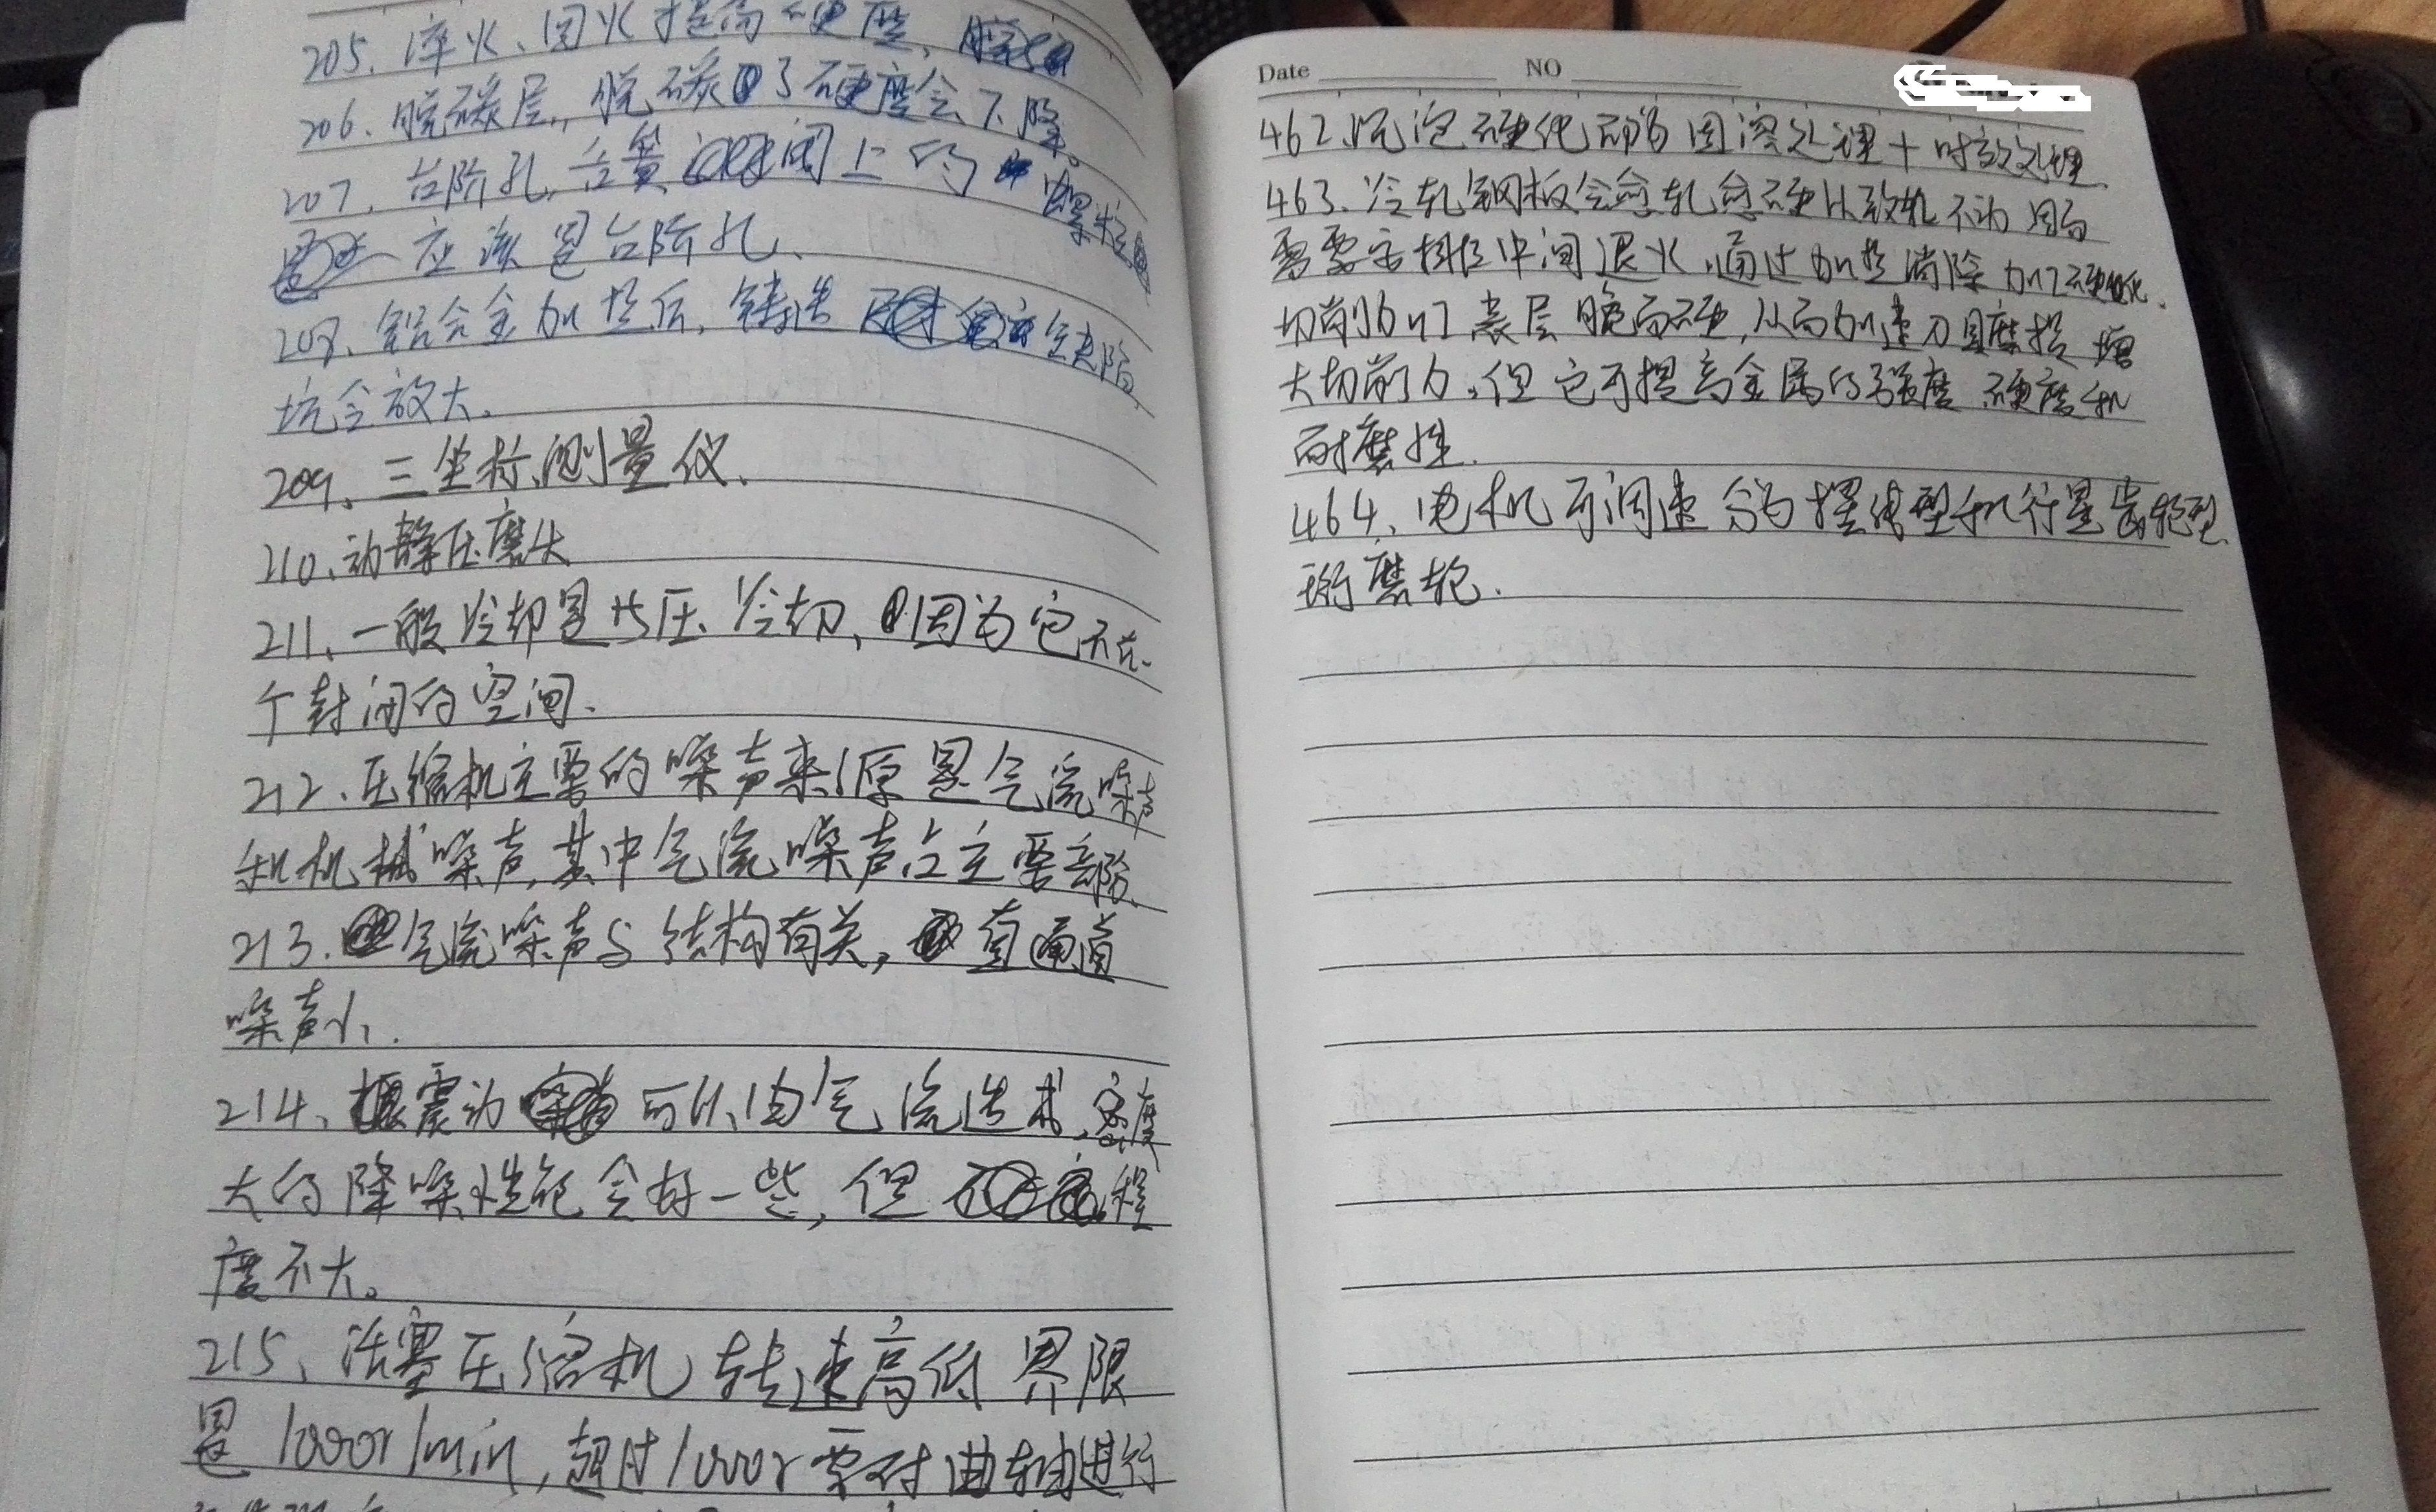 205. 淬火、回火提高硬度,
206. 脱碳层, 脱碳了硬度会下降。
207. 台阶孔, 阀上的螺栓
应该是台阶孔、
208. 铝合金加热后, 铸造气缺陷
坑会放大。
209、三坐标测量仪、
210、动静压磨头
211、一般冷却是常压冷却、因为它不在一
个封闭的空间、
212、压缩机主要的噪声来源是气流噪声
和机械噪声, 其中气流噪声占主要部分、
213. 气流噪声与结构有关, 直通道
噪声小.
214、震动可以由气流造成, 密度
大的降噪性能会好一些, 但程
度不大。
215、活塞压缩机转速高低界限
是1000r/min, 超过1000r要对曲轴进行
Date NO
462. 沉淀硬化即为固溶处理+时效处理.
463. 冷轧钢板会愈轧愈硬以致轧不动 因而
需要安排中间退火, 通过加热消除加工硬化.
切削加工表层脆而硬, 从而加速刀具磨损 增
大切削力, 但它可提高金属的强度 硬度和
耐磨性.
464、电机可调速分为摆线型和行星齿轮型.
珩磨轮.